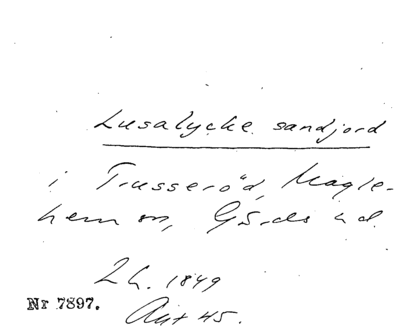 Lusalycke sandjord
i Trusseröd, Magle-
hem sn, Gärds hd.
Lh. 1849
Nr 7897.
Akt 45.